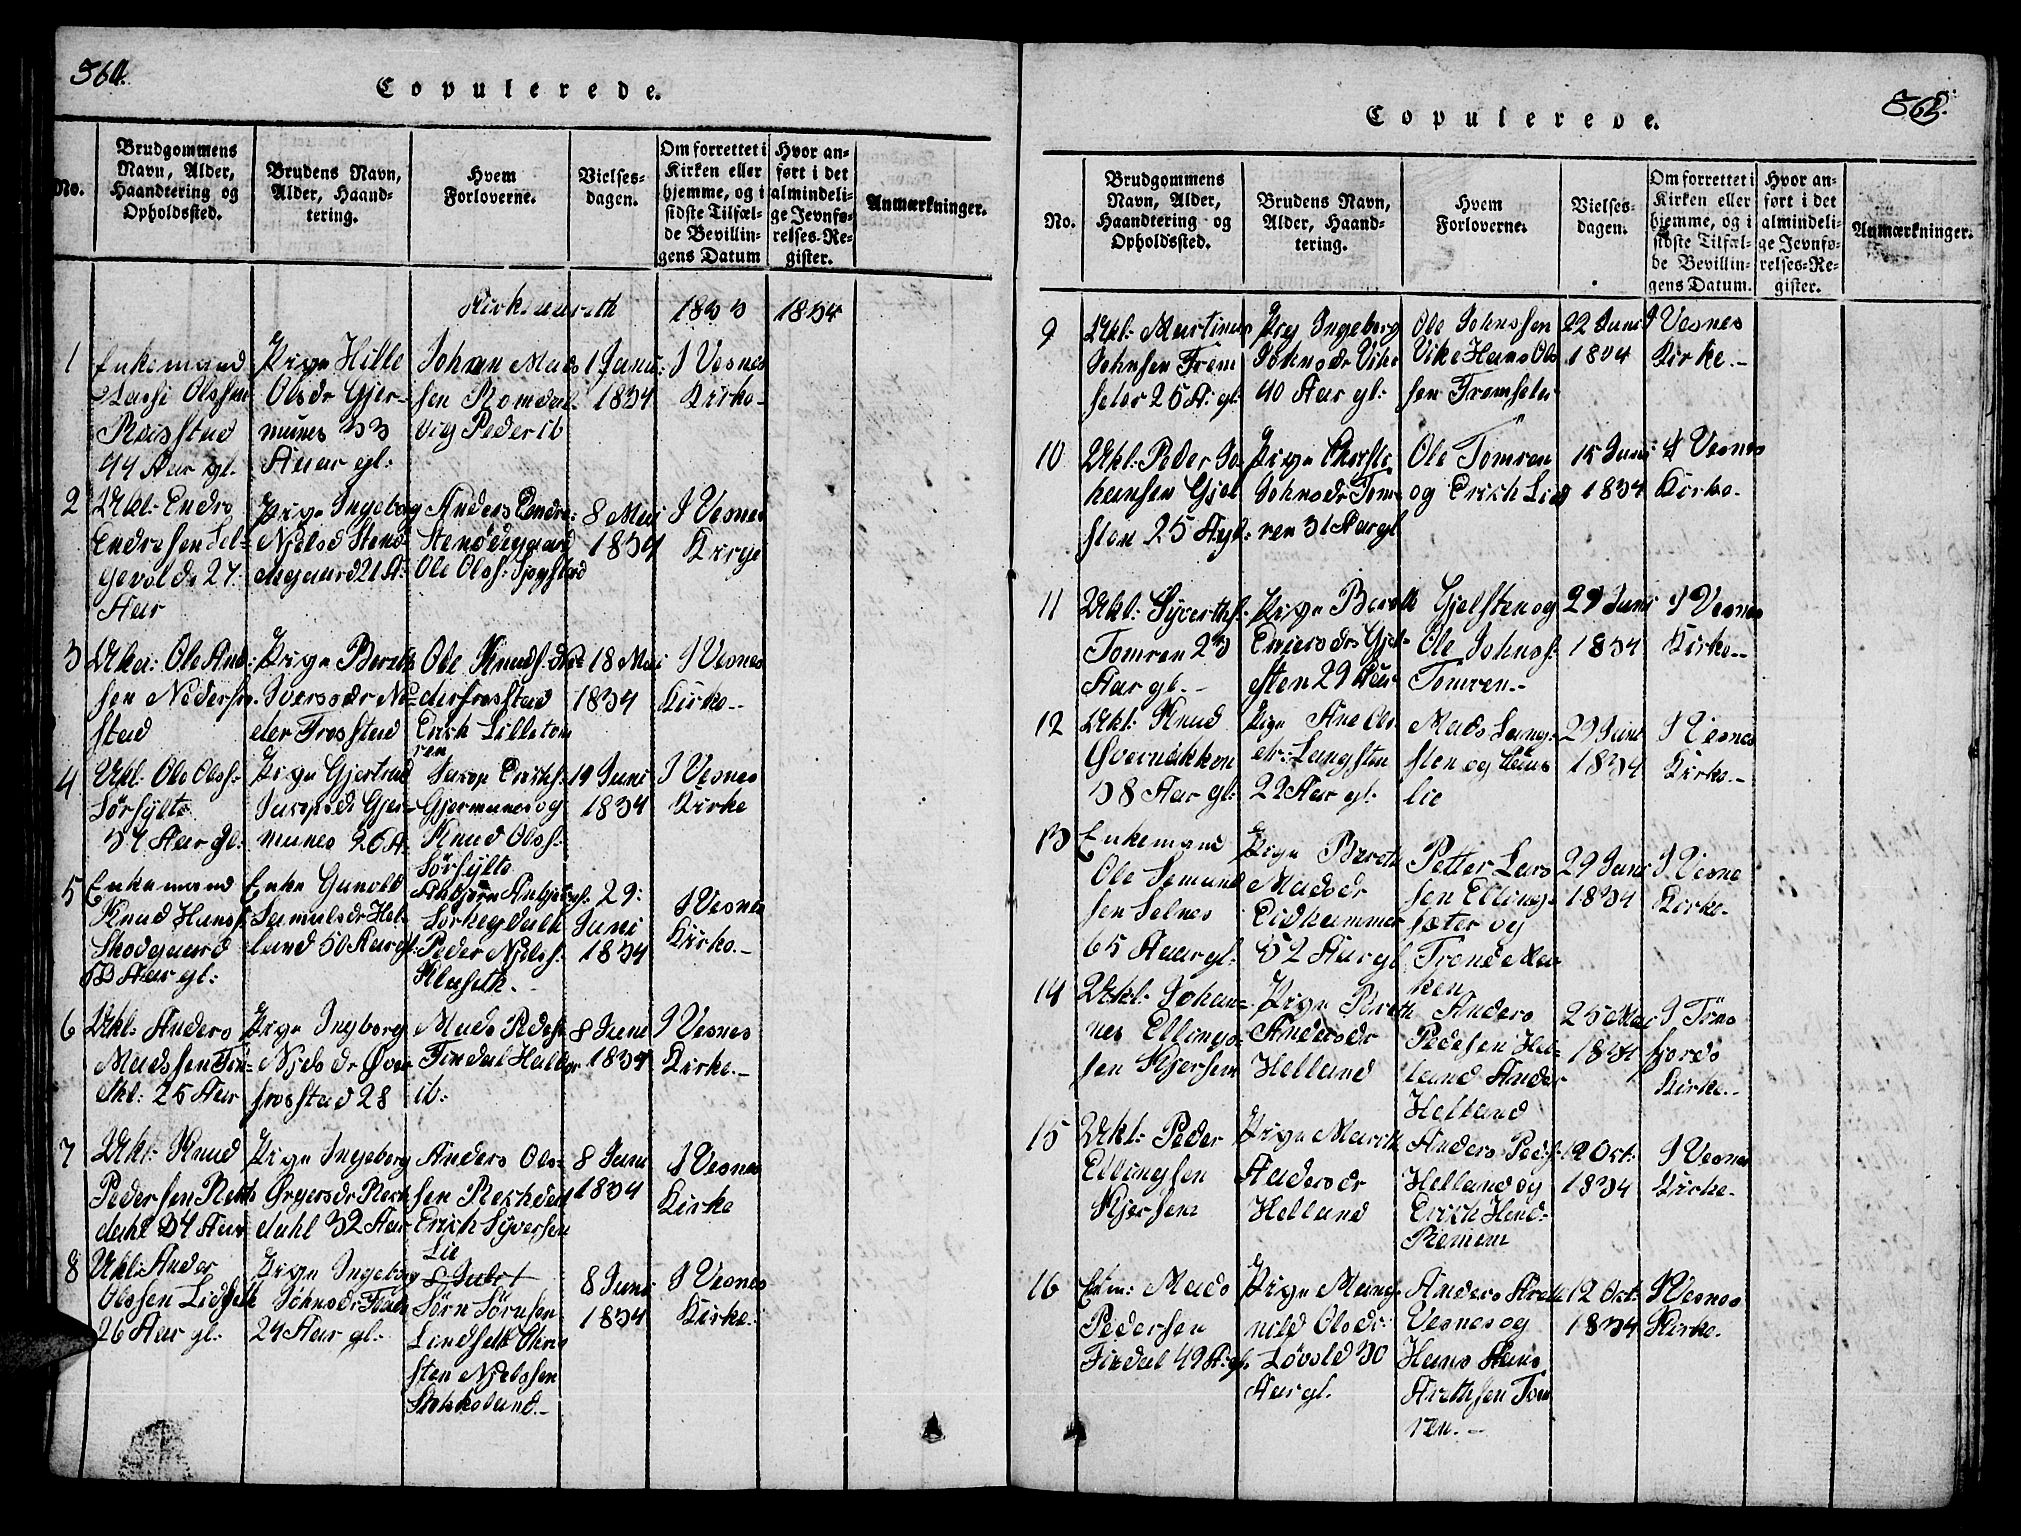 364.
Copulerede.
No.
Brudgommens
Navn, Alder,
Haandtering og
Opholdssted.
Brudens Navn,
Alder, Haand-
tering.
Hvem
Forloverne.
Vielses-
dagen.
Om forrettet i
Kirken eller
hjemme, og i
sidste Tilfæl-
de Bevillin-
gens Datum
Hvor an-
ført i det
almindeli-
ge Jevnfø-
relses-Re-
gister.
Anmærkninger.
1833 1834
1
Enkemand
Olssen
44 Aar gl.
Pige Hille
Olsdr Gjer-
munes 33
Aar gl:
Johan Mads
sen Romdal
vig Peder ib
1 Juni
1834
I Vesnes
Kirke-
2
Ukl: Endre
Endresen Sel-
gevold 27
Aar
Pige Ingeborg
Nielsd Stend
Anders Endre:
Ole Olss:
8 Mai
1834
I Vesnes
Kirge
3
Ole And
sen Nederfro
stad
Pige Bereth
Iversdr Ne
der Frostad
Ole Knuds:
derfrostad
Erich Lilletom
ren
18 Mai
1834
I Vesnes
Kirke-
4
Ukl: Ole Olss:
Sörsylte
34 Aar gl:
Pige Gjertrud
Jacopsdr Gjer
munes 26 A
Jacop Erichs:
Gjermunes og
Knud Olss:
Sörsylte
19 Juni
1834
I Vesnes
Kirke
5
Enkemand
Knud Hanss:
Skodgaard
53 Aar gl:
Enke Gunold
Samulsdr Hel
land 50 Aar gl
Peder Njels:
29:
Juni
1834
I Vesnes
Kirke.-
6
Ukl: Anders
Madssen Fin-
25 Aar
Pige Ingborg
Njelsdr Øver
frostad 28
Mads Peders
Findal
ib:
8 Juni
1834
I Vesnes
Kirke.-
7
Ukl: Knud
Pedersen Rek
dahl 34 Aar
Pige Ingeborg
dahl 32 Aar
Anders Ols-
sen Rechdal
Erich Siversen
Lie
8 Juni
1834
I Vesnes
Kirke
8
Ukl: Ander
Olssen Lidseth
26 Aar gl:
Pige Ingeborg
Johnsdr
24 Aar gl:
Sörn Sörnsen
Lindseth Chri
sten Njelssen
8 Juni
1834
I Vesnes
Kirke.
365.
Copulerede.
No.
Brudgommens
Navn, Alder,
Haandtering og
Opholdssted.
Brudens Navn,
Alder, Haand-
tering.
Hvem
Forloverne.
Vielses-
dagen.
Om forrettet i
Kirken eller
hjemme, og i
sidste Tilfæl-
de Bevillin-
gens Datum.
Hvor an-
ført i det
almindeli-
ge Jevnfø-
relses-Re-
gister.
Anmærkninger.
9
Ukl: Martinus
Johnsen Frem
seter 25 A: gl:
Pig Ingeborg
Johnsdr Vike
40 Aar gl:
Ole Johnssen
Vike Hans Ols
sen Fremseter
22 Juni
1834
I Vesnes
Kirke.-
10
Ukl: Peder Jo
hansen Gjel
sten 25 A gl:
Pige
Johnsdr Tom
ren 31 Aar gl
Ole Tomren
og Erich Lied
15 Juni
1834
I Vesnes
Kirke.
11
Ukl: Syverths:
Tomren 23
Aar gl.-
Pige Bereth
Gjel
sten 29 Aar
Gjelsten og
Ole Johns:
Tomren.-
29 Juni
1834
I Vesnes
Kirke.-
12
Ukl: Knud
38 Aar gl:
Pige Ane Ols
dr: Langsten
22 Aar gl:
Mads Lang
sten og Hans
Lie
29 Juni
1834
I Vesnes
Kirke.-
13
Enkemand
Ole Semund
sen Selnes
65 Aar gl:
Pige Bereth
Madsdr
Eidhammer
52 Aar gl
Petter Lars
sen Ellings-
sæter og
Trond
29 Juni
1834
I Vesne
Kirke.
14
Ukl: Johan-
nes Ellings-
sen Kjersem
Pige Bereth
Andersdr
Helland
Anders
Pedesen Hel-
land Ander
Helland
25 Mai
1834
I
fjords
Kirke.-
15
Ukl: Peder
Ellingsen
Kjersem
Pige Marith
Andersdr
Helland
Anders Peds:
Helland og
Erich Hend-
Remem
12 Oct:
1834
I Vesnes
Kirke.-
16
Mads
Pedersen
Findal 49 A: gl
Pige Mang-
nild Olsdr:
Løvold 30
Aar gl.
Anders Areth
Vesnes og
Hans Hans
Arethsen Tom
ren.-
12 Oct:
1834
I Vesnes
Kirke.